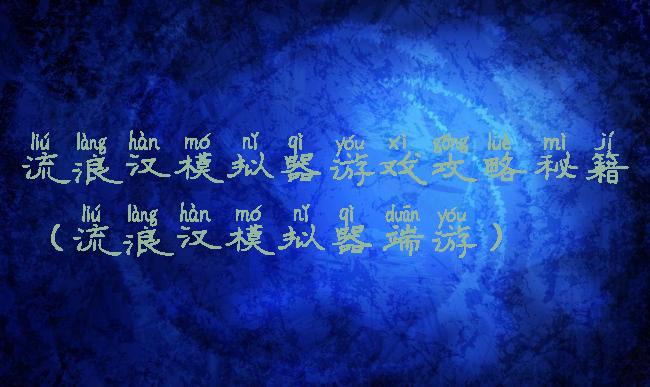 liú làng hàn mó nǐ qì yóu xì gōng lüè mì jí
流浪汉模拟器游戏攻略秘籍
liú làng hàn mó nǐ qì duān yóu
（流浪汉模拟器端游）